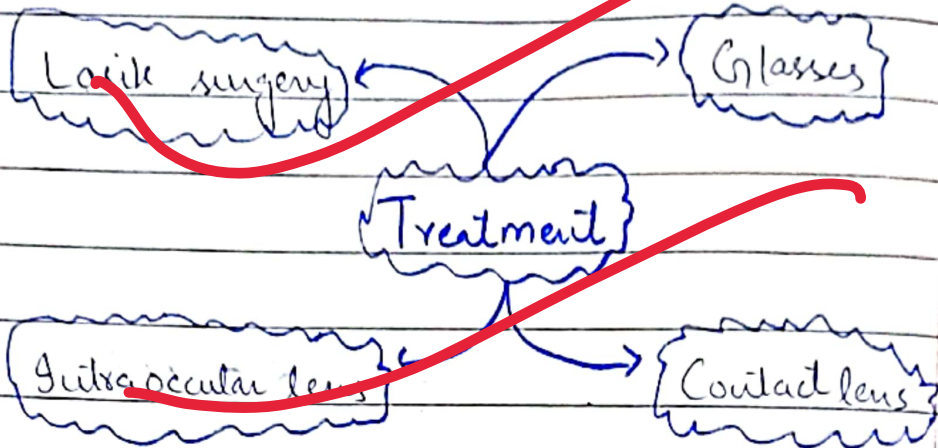 Lasik surgery
Glasses
Treatment
Intraoccular lens
Contact lens